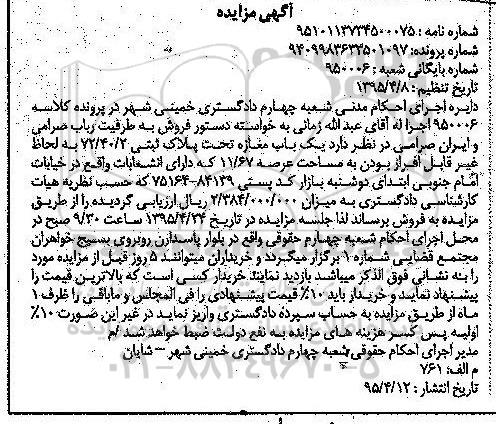 آگهی مزایده
شماره نامه : ۹۵۱۰۱۱۳۷۳۴۵۰۰۰۷۵
شماره پرونده: ۹۴۰۹۹۸۳۶۳۴۵۰۱۰۹۷
شماره بایگانی شعبه : ۹۵۰۰۰۶
تاریخ تنظیم : ۱۳۹۵/۴/۸
دایره اجرای احکام مدنی شعبه چهارم دادگستری خمینی شهر در پرونده کلاسه
۹۵۰۰۰۶ اجرا له آقای عبدالله زمانی به خواسته دستور فروش به طرفیت رباب صرامی
و ایران صرامی در نظر دارد یک باب مغازه تحت پلاک ثبتی ۷۲/۴۰/۲ به لحاظ
غیر قابل افراز بودن به مساحت عرصه ۱۱/۶۷ که دارای انشعابات واقع در خیابان
امام جنوبی ابتدای دوشنبه بازار کد پستی ۸۴۱۳۹-۷۵۱۶۴ که حسب نظریه هیات
کارشناسی دادگستری به میزان ۲/۳۸۴/۰۰۰/۰۰۰ ریال ارزیابی گردیده را از طریق
مزایده به فروش برساند لذا جلسه مزایده در تاریخ ۱۳۹۵/۴/۲۴ ساعت ۹/۳۰ صبح در
محل اجرای احکام شعبه چهارم حقوقی واقع در بلوار پاسداران روبروی بسیج خواهران
مجتمع قضایی شماره ۱ برگزار میگردد و خریداران میتوانند ۵ روز قبل از مزایده مورد
را به نشانی فوق الذکر میباشد بازدید نمایند خریدار کسی است که بالاترین قیمت را
پیشنهاد نماید و خریدار باید ۱۰٪ قیمت پیشنهادی را فی المجلس و مابقی را ظرف ۱
ماه از طریق مزایده به حساب سپرده دادگستری واریز نماید در غیر این صورت ۱۰٪
اولیه پس کسر هزینه های مزایده به نفع دولت ضبط خواهد شد /م
مدیر اجرای احکام حقوقی شعبه چهارم دادگستری خمینی شهر – شایان
م الف: ۷۶۱
تاریخ انتشار : ۹۵/۴/۱۲
۰۲۱-۸۸۳۴۹۶۷۰-۵